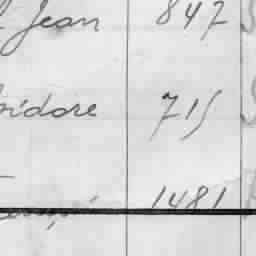 Jean 847
sidore 715
1481